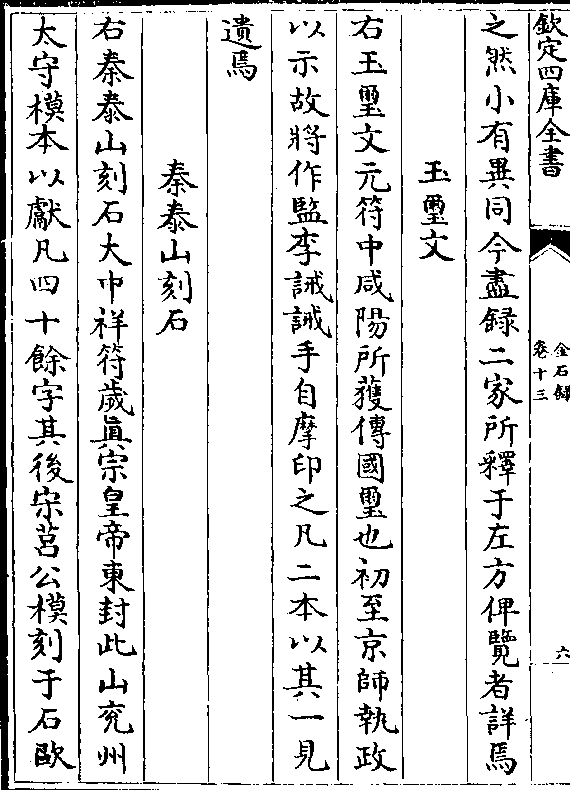 欽定四庫全書
金石録
卷十三
六
之然小有異同今盡録二家所釋于左方俾覽者詳焉
玉璽文
右玉璽文元符中咸陽所獲傳國璽也初至京師執政
以示故將作監李誡誡手自摩印之凡二本以其一見
遺焉
秦泰山刻石
右秦泰山刻石大中祥符歲真宗皇帝東封此山兖州
太守模本以獻凡四十餘字其後宋莒公模刻于石歐